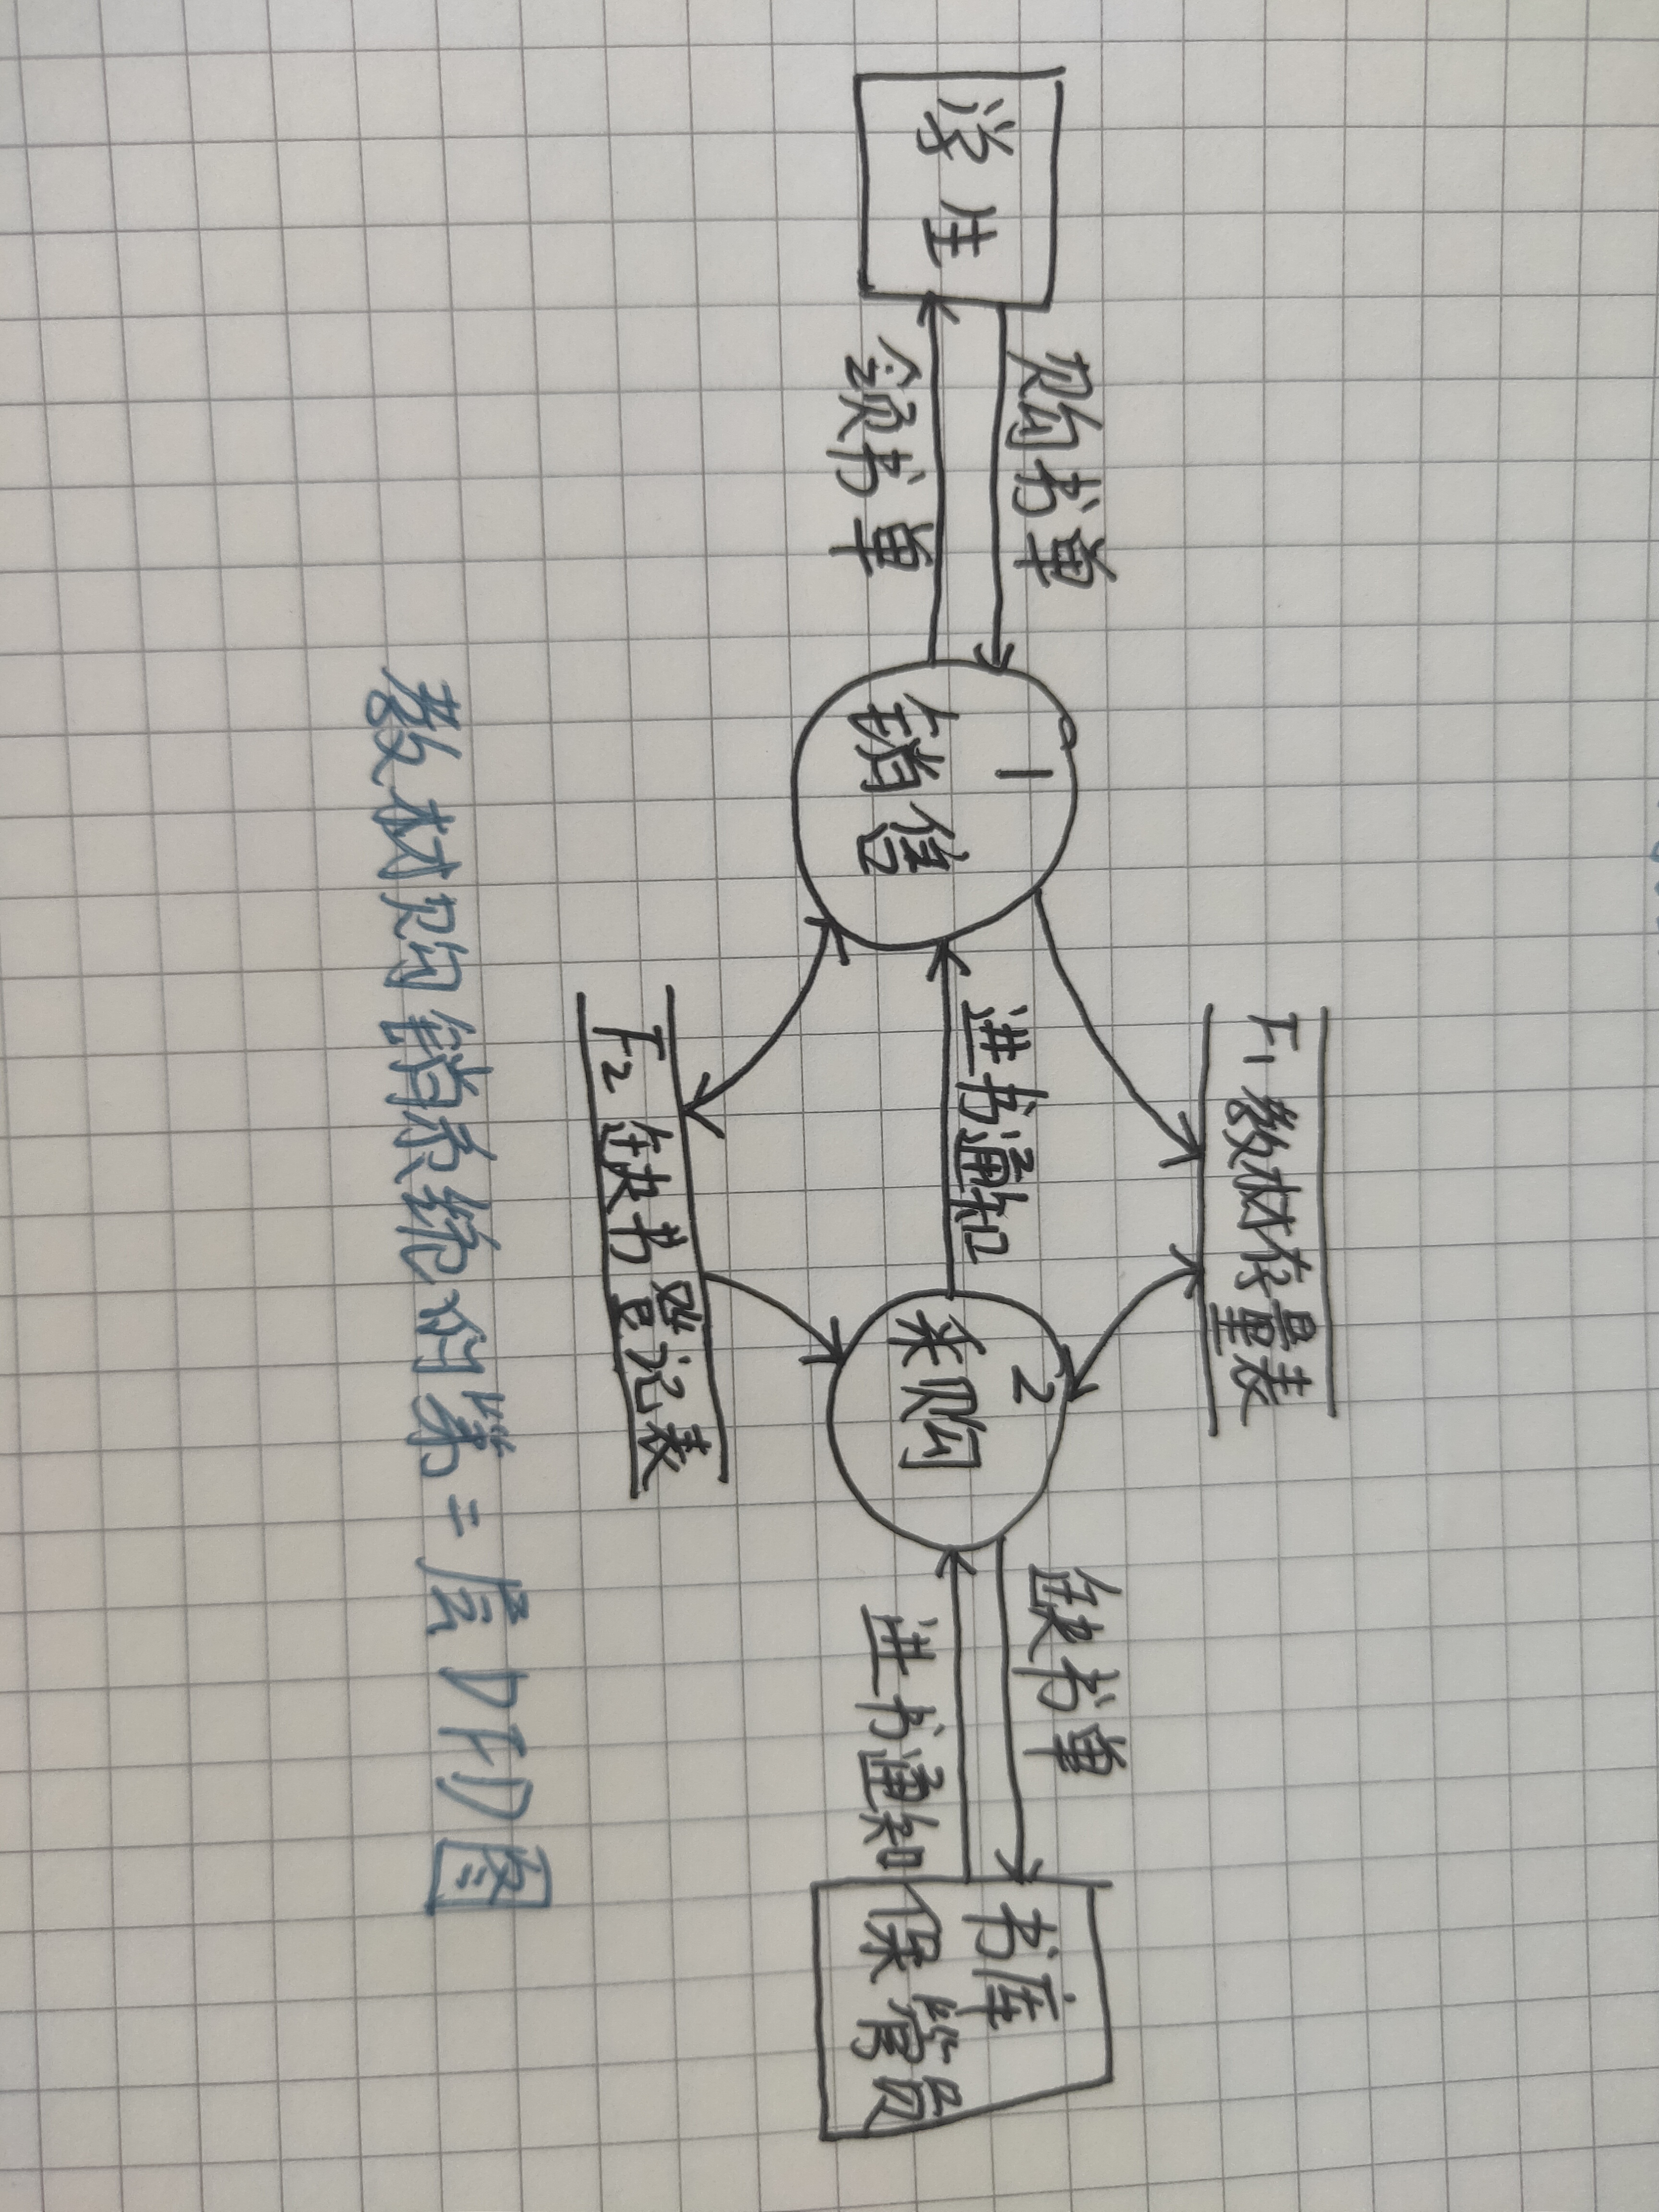 F1 教材存量表
学生
购书单
领书单
1
销售
进书通知
2
采购
缺书单
进书通知
书库
保管员
F2 缺书登记表
教材购销系统的第二层DFD图